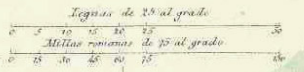 Leguas de 25 al grado
0 5 10 15 20 25 50
Millas romanas de 75 al grado
0 15 30 45 60 75 150